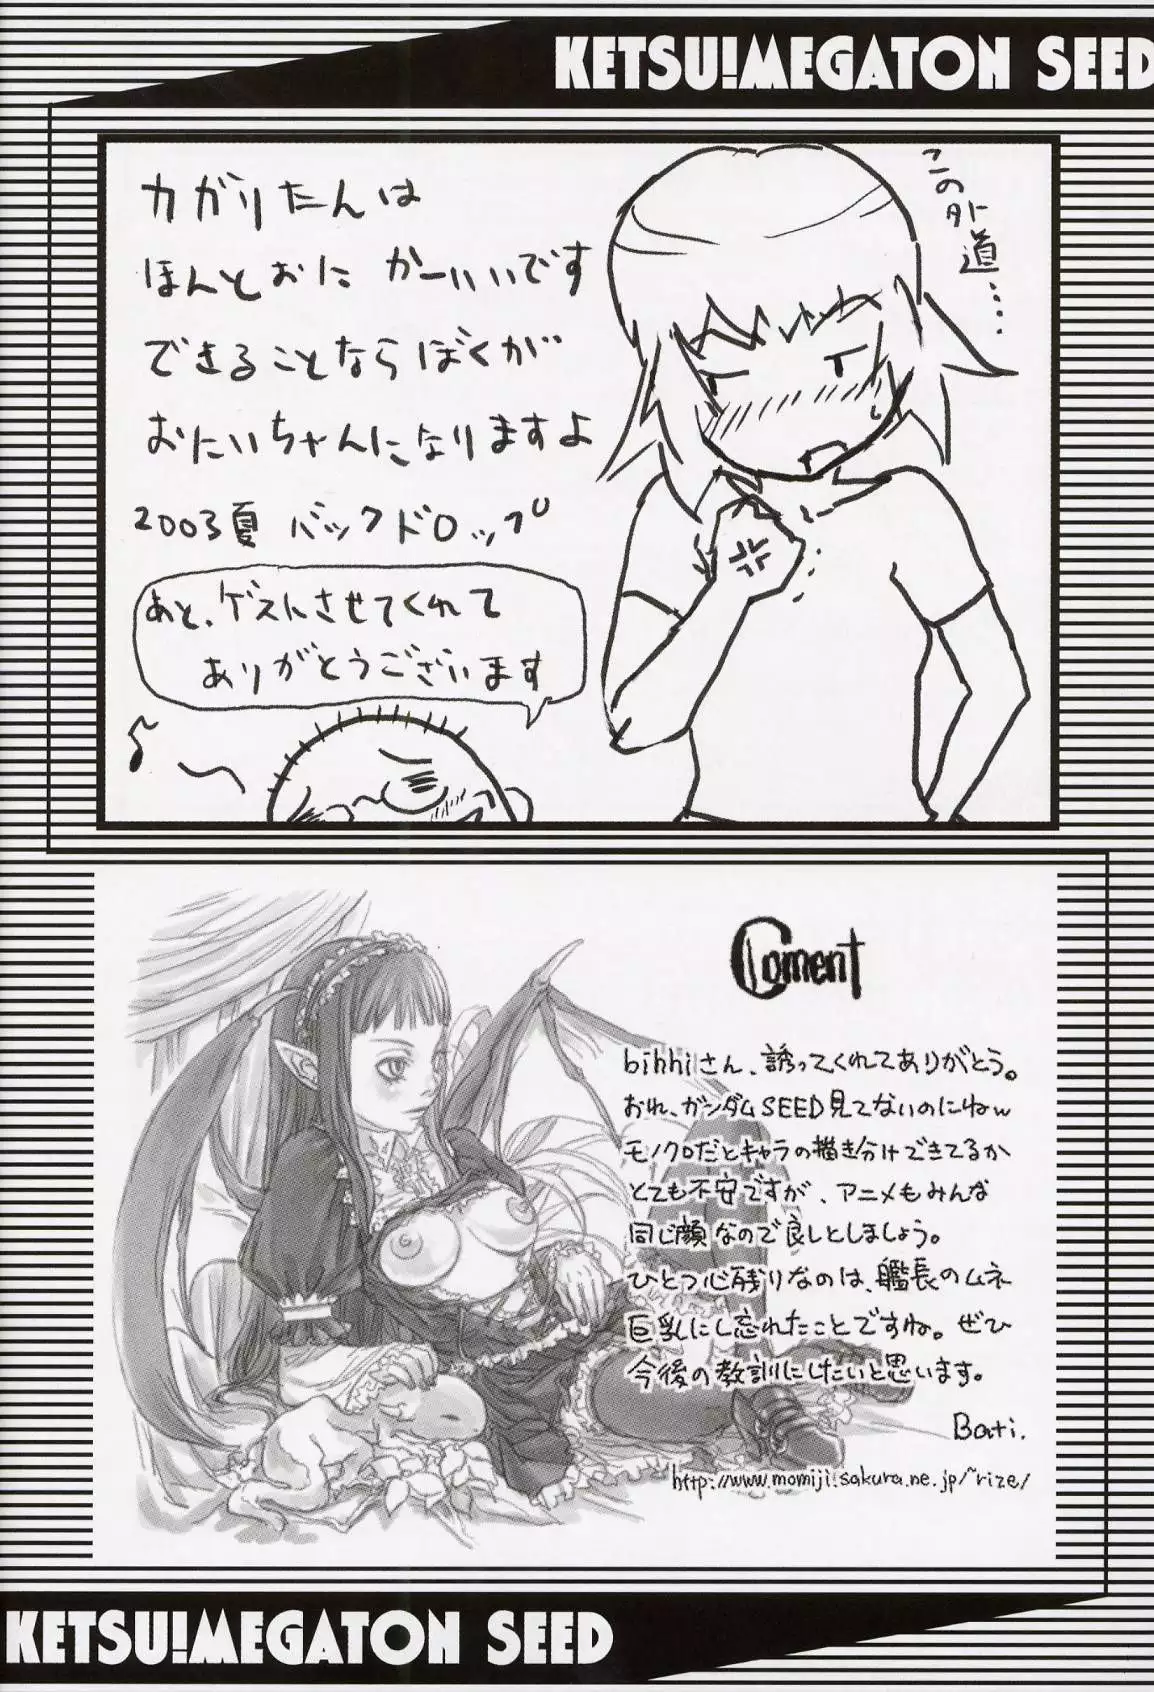 KETSU!MEGATON SEED
カガリたんは
ほんとおに かーいいです
できることならぼくが
おにいちゃんになりますよ
2003夏 バックドロップ
この外道……
あと、ゲストにさせてくれて
ありがとうございます
Coment
bihhiさん、誘ってくれてありがとう。
おれ、ガンダムSEED見てないのにねw
モノクロだとキャラの描き分けできてるか
とても不安ですが、アニメもみんな
同じ顔なので良しとしましょう。
ひとつ心残りなのは、艦長のムネ
巨乳にし忘れたことですね。ぜひ
今後の教訓にしたいと思います。
Bati.
http://www.momiji.sakura.ne.jp/~rize/
KETSU!MEGATON SEED